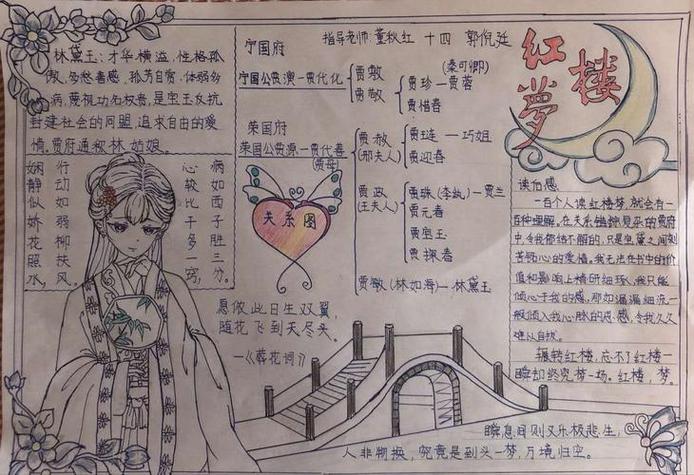 林黛玉:才华横溢,性格孤
傲,多愁善感,孤芳自赏,体弱多
病,蔑视功名权贵,是宝玉反抗
封建社会的同盟,追求自由的爱
情。贾府通称林姑娘。
娴静似娇花照水,
行动如弱柳扶风。
心较比干多一窍,
病如西子胜三分。
宁国府
宁国公贾演—贾代化
贾敷
贾敬
(秦可卿)
贾珍—贾蓉
贾惜春
荣国府
荣国公贾源—贾代善
(贾母)
贾赦
(邢夫人)
贾琏—巧姐
贾迎春
贾政
(王夫人)
贾珠(李纨)—贾兰
贾元春
贾宝玉
贾探春
贾敏(林如海)—林黛玉
关系图
愿侬此日生双翼
随花飞到天尽头。
—《葬花词》
指导老师:董秋红 十四 郭倪廷
红楼梦
读后感
一百个人读红楼梦,就会有一
百种理解。在关系错综复杂的贾府
中,令我
的,只是宝黛之间刻
苦铭心的爱情。我无法在书中的价
值和影响上精研细琢,我只能
倾心于我的感,那如涓涓细流一
般倾入我心脉的思感,令我久久
难以自拔。
辗转红楼,忘不了红楼一
瞬却终究梦一场。红楼,梦。
瞬息间则又乐极悲生,
人非物换,究竟是到头一梦,万境归空。